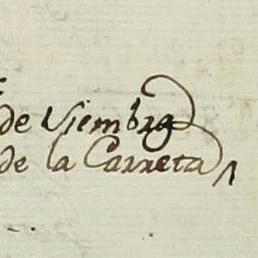 de Viembrg
de la Carreta